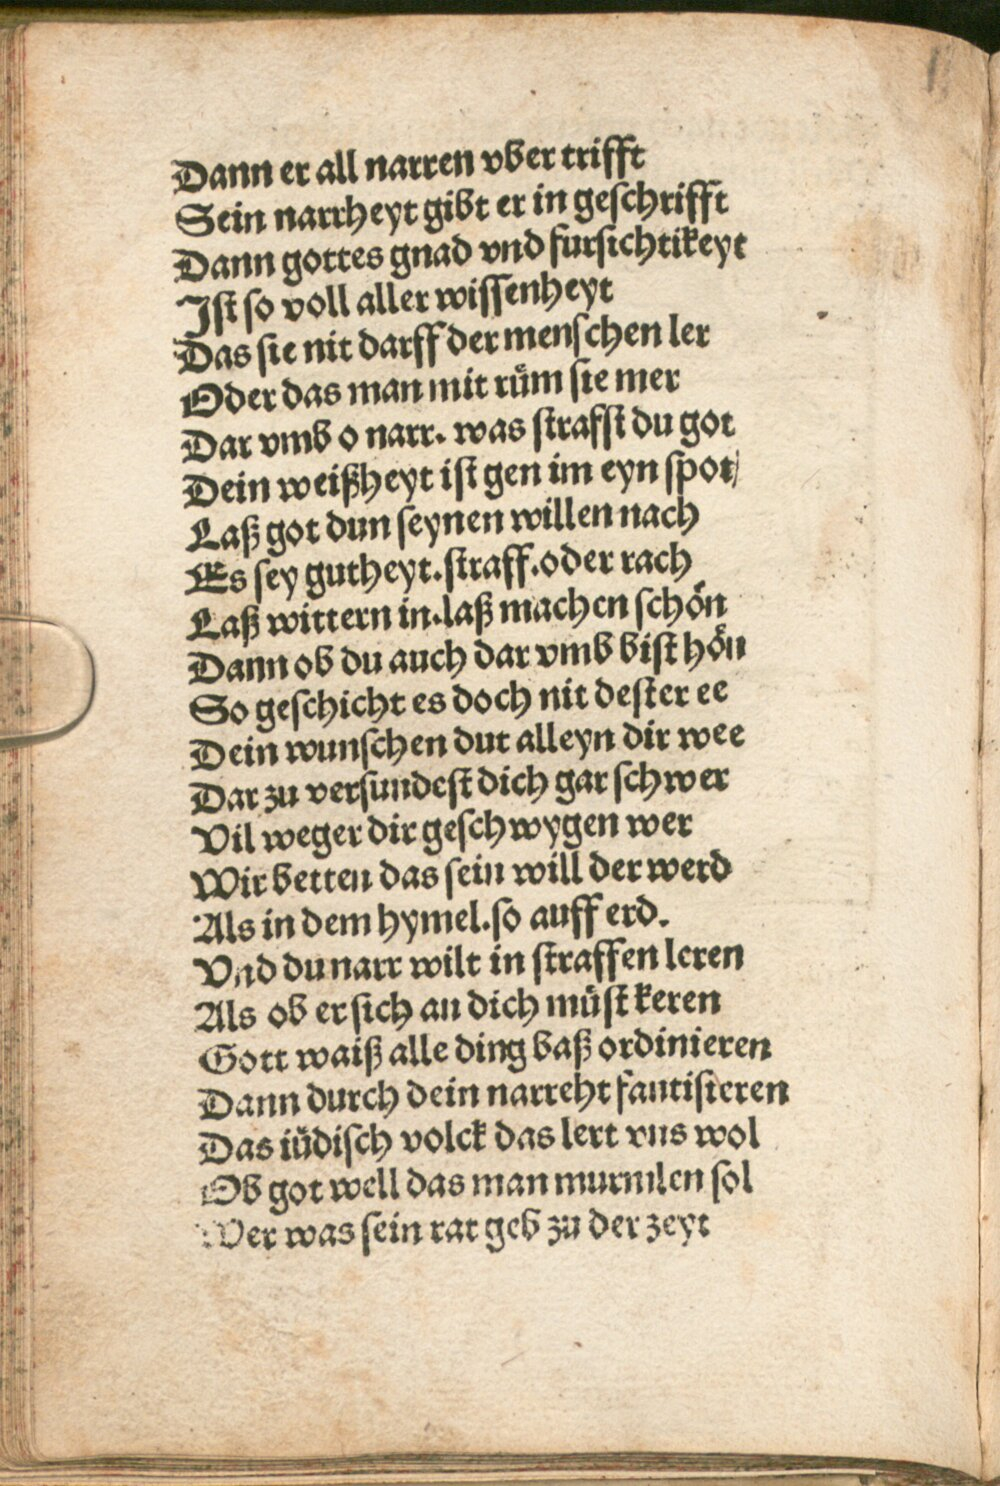 Dann er all narren vber trifft
Sein narrheyt gibt er in geſchrifft
Dann gottes gnad vnd furſichtikeyt
Iſt ſo voll aller wiſſenheyt
Das ſie nit darff der menſchen ler
Oder das man mit rům ſie mer
Dar vmb o narr. was ſtrafſt du got
Dein weißheyt iſt gen im eyn spot/
Laß got dun ſeynen willen nach
Es ſey gutheyt.ſtraff.oder rach
Laß wittern in.laß machen ſchoͤn
Dann ob du auch dar vmb biſt hoͤn
So geſchicht es doch nit deſter ee
Dein wunſchen dut alleyn dir wee
Dar zu verſundeſt dich gar ſchwer
Vil weger dir geſchwygen wer
Wir betten das ſein will der werd
Als in dem hymel.ſo auff erd.
Vnd du narr wilt in ſtraffen leren
Als ob er ſich an dich můſt keren
Gott waiß alle ding baß ordinieren
Dann durch dein narreht fantiſieren
Das iůdiſch volck das lert vns wol
Ob got well das man murmlen ſol
Wer was ſein rat geb zu der zeyt